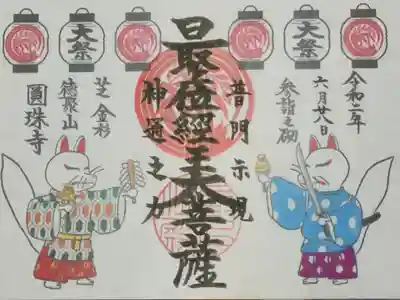 大祭
大祭
令和二年
六月廿八日
参詣之砌
普門示現
最位經王大菩薩
神通之力
芝 金杉
德聚山
圓珠寺